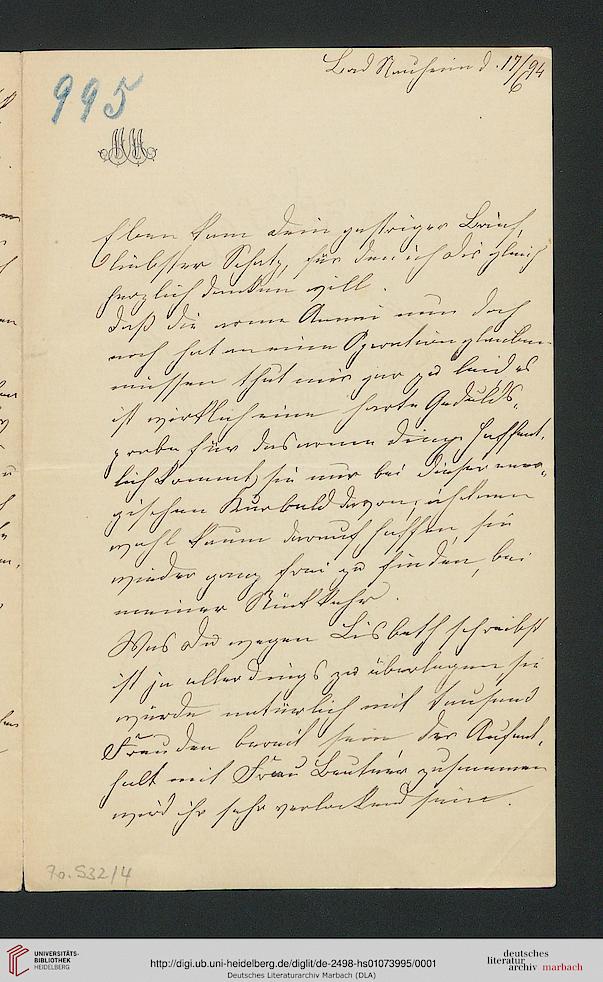 995
Bad Nauheim d. 17/6 94
Eben kam Dein gestriger Brief,
liebster Schatz, für den ich Dir gleich
herzlich danken will.
Daß die arme Anni nun doch
noch hat an eine Operation glauben
müssen thut mir gar zu leid es
ist wirklich eine harte Gedulds-
probe für das arme Ding. Hoffent-
lich kommt sie nur bei dieser ener-
gischen Kur bald davon; ich kann
wohl kaum darauf hoffen, sie
wieder ganz frei zu finden, bei
meiner Rückkehr.
Was Du wegen Lisbeth schreibst
ist ja allerdings zu überlegen, sie
würde natürlich mit tausend
Freuden bereit sein der Aufent-
halt mit Frau Beutner zusammen
wird ihr sehr verlockend sein.
70.532/4
UNIVERSITÄTS-
BIBLIOTHEK
HEIDELBERG
http://digi.ub.uni-heidelberg.de/diglit/de-2498-hs01073995/0001
Deutsches Literaturarchiv Marbach (DLA)
deutsches
literatur
archiv marbach